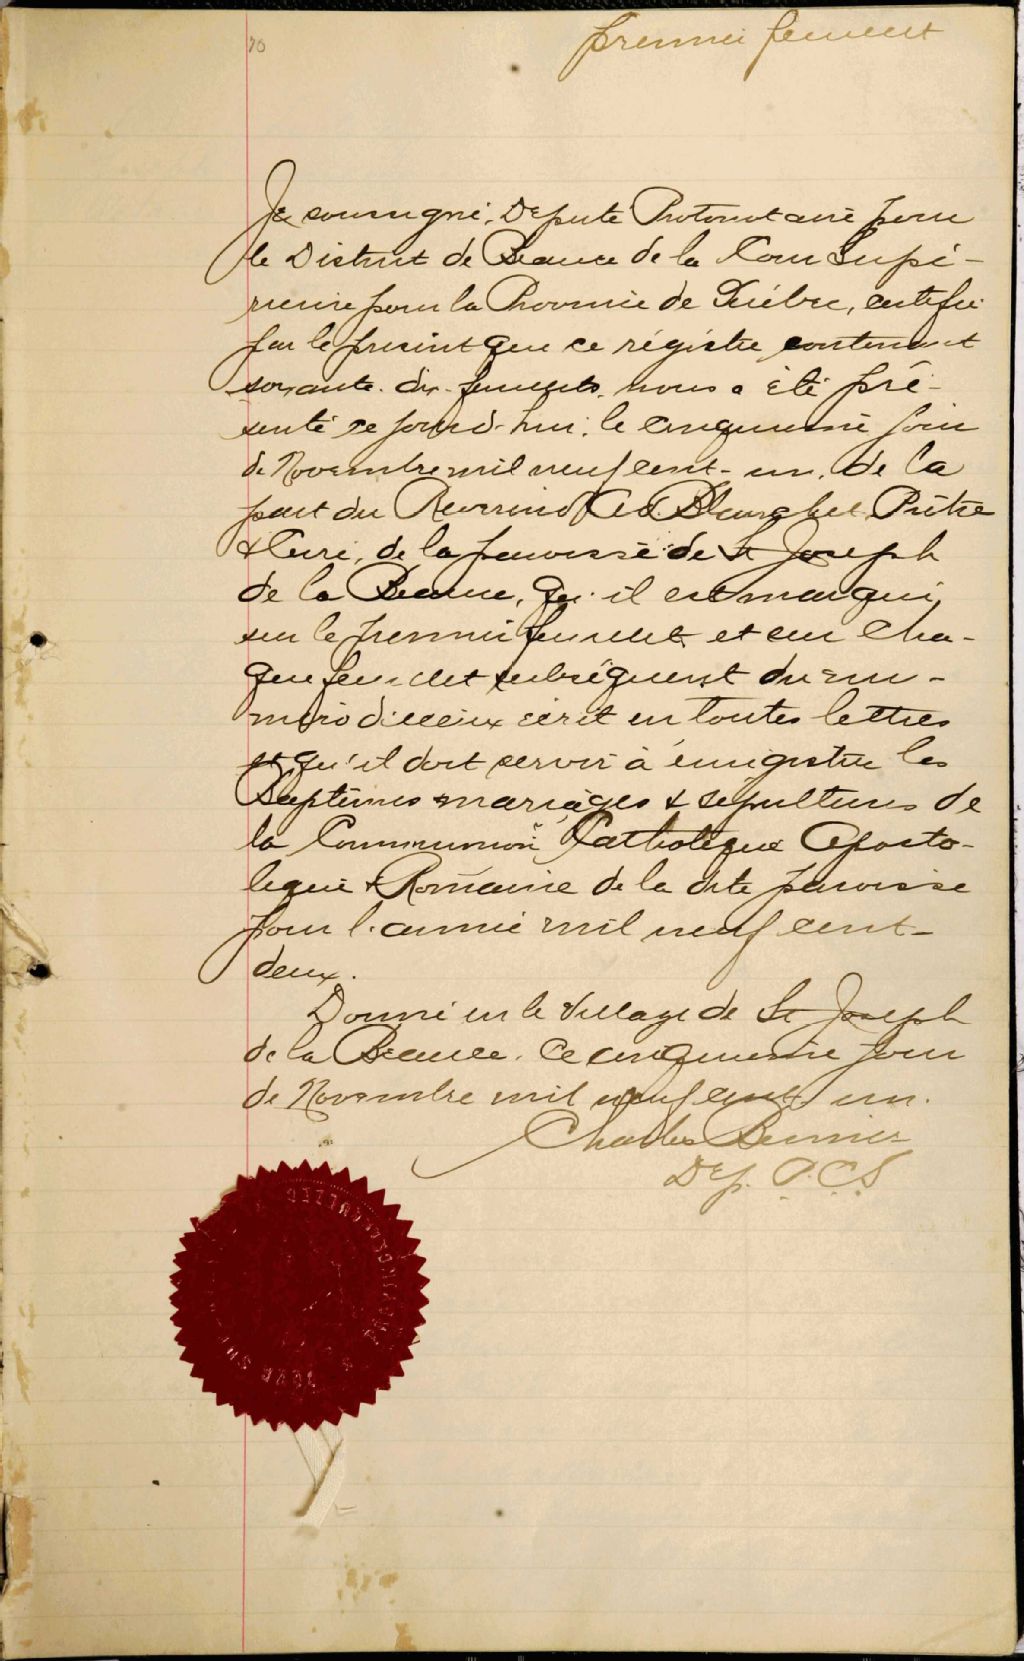 70
premier feuillet
Je soussigné, Député Protonotaire pour
le District de Beauce de la Cour Supé-
rieure pour la Province de Québec, certifie
par le présent que ce régistre contenant
soixante-dix-feuillets, nous a été pré-
senté ce jourd'hui, le cinquième jour
de Novembre mil neuf cent-un, de la
part du Révérend Ad. Blanchet, Prêtre
& Curé, de la paroisse de St Joseph
de la Beauce, qu'il est marqué
sur le premier feuillet et sur cha-
que feuillet subséquent du nu-
méro d'iceux écrit en toutes lettres
et qu'il doit servir à énregistrer les
Baptêmes mariages & sépultures de
la Communion Catholique Aposto-
lique & Romaine de la dite paroisse
pour l'année mil neuf cent-
deux.
Donné en le Village de St Joseph
de la Beauce, ce cinquième jour
de Novembre mil neuf cent-un.
Charles Bernier
Dép. P.C.S